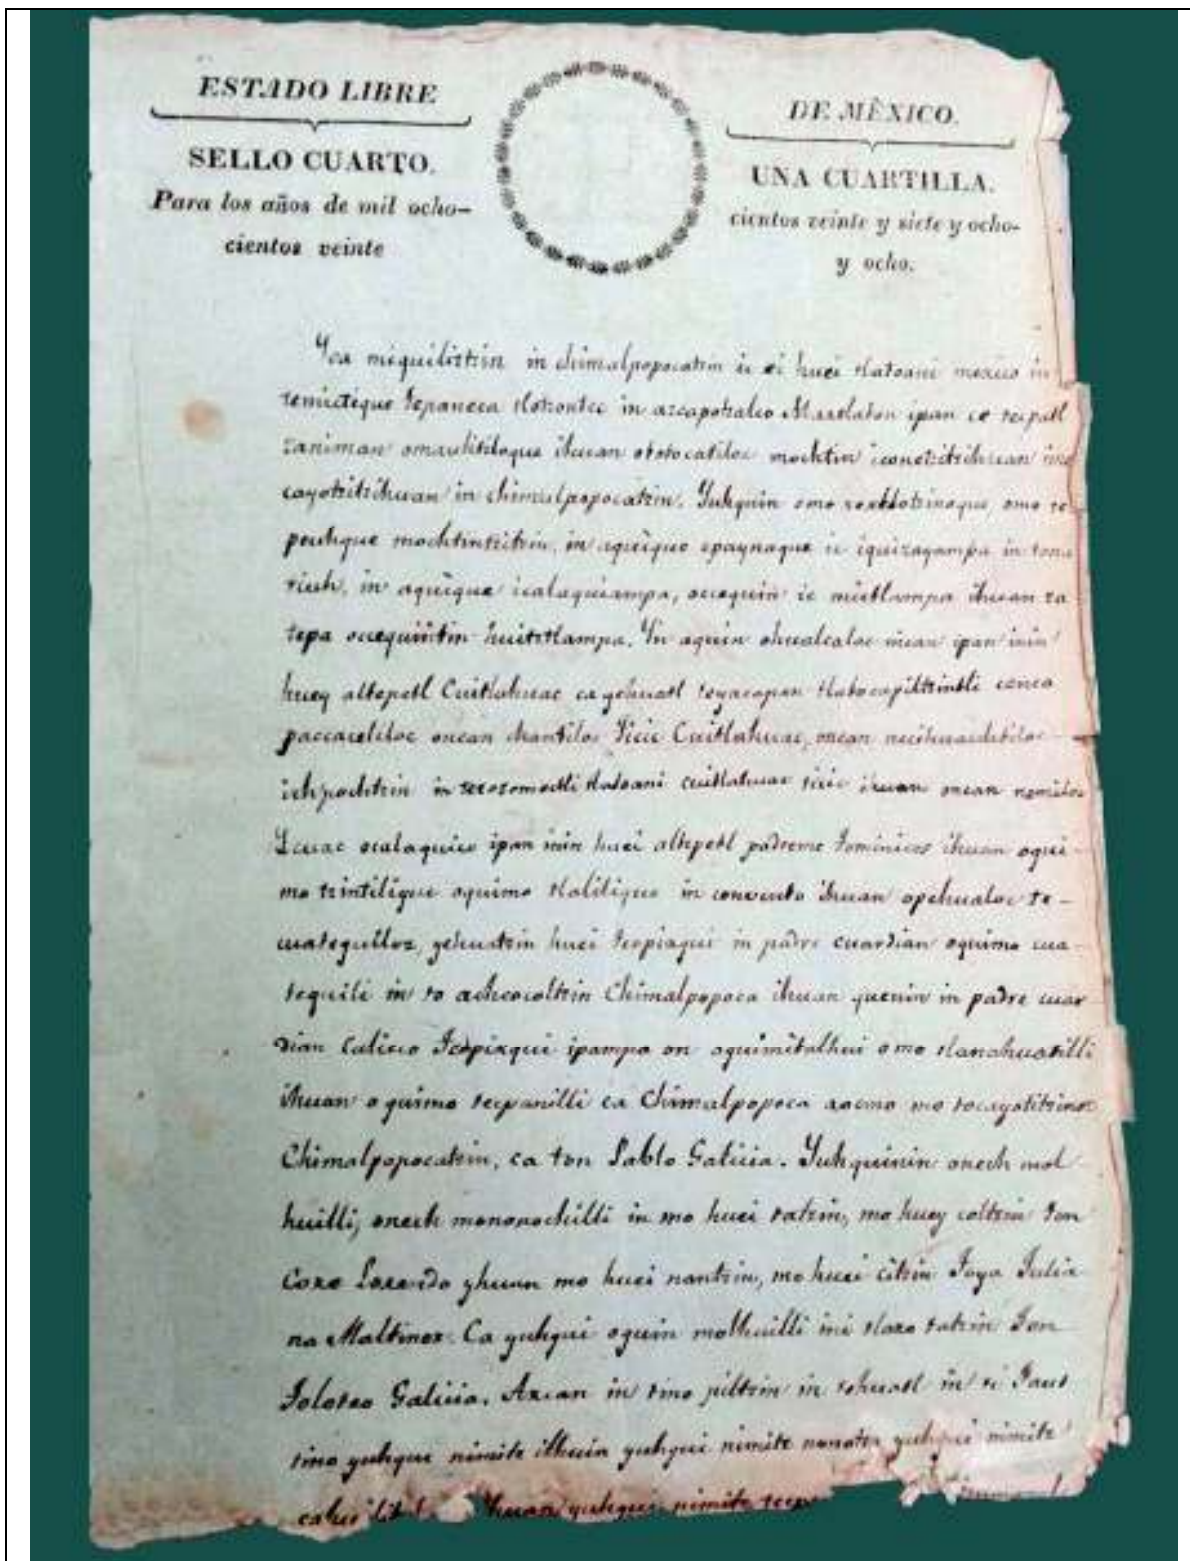 ESTADO LIBRE
DE MÊXICO.
SELLO CUARTO.
UNA CUARTILLA.
Para los años de mil ocho-
cientos veinte y siete y ocho-
cientos veinte
y ocho.
Yca miquilistzin in chimalpopocatzin ic ei huei tlatoani mexico in
temictique tepaneca tlotzontec in azcapotzalco Maxtlaton ipan ce tecpatl
zaniman omauhtiloque ihuan ototocatiloc mochtin iconetzitzihuan ino
cayotzitzihuan in chimalpopocatzin. Yuhquin omo omo ce
pouhque mochtintzitzin, in aquique opaynaque ic iquizayampa in tona
tiuh, in aquique icalaquiampa, ocequin ic mictlampa ihuan za
tepa ocequintin huitztlampa. Yn aquin ohualcaloc nican ipan inin
huey altepetl Cuitlahuac ca yehuatl teyacapan tlatocapiltzintli conco
paccaceliloc oncan chantiloc Ticic Cuitlahuac, oncan
ichpochtzin in tezozomoctli tlatoani cuitlahuac ticic ihuan oncan nemiloc
Icuac ocalaquico ipan inin huei altepetl padreme Tominicos ihuan oqui-
mo tzintilique oquimo tlalilique in convento ihuan opehualoc te-
cuatequilloz, yehuatzin huei teopixqui in padre cuardian oquimo cua-
tequili in to achcocoltzin Chimalpopoca ihuan quenin in padre cuar
dian Calicio Teopixqui ipampa on oquimitalhui omo tlanahuatilli
ihuan oquimo tecpanilli ca Chimalpopoca aocmo mo tocayotitzinoz
Chimalpopocatzin, ca ton Pablo Galicia. Yuhquinin onech mol
huilli, onech mononochilli in mo huei tatzin, mo huey coltzin Ton
Coxe Loxendo yhuan mo huei nantzin, mo huei citzin Toya Julia
na Maltinez. Ca yuhqui oquin molhuilli ini tlazo tatzin Ton
Toloteo Galicia. Axcan in timo piltzin in tehuatl in ti Faus
tino yuhque nimitz ilhuia yuhqui nimitz nonotza yuhqui nimitz
ihuan yuhqui nimitz